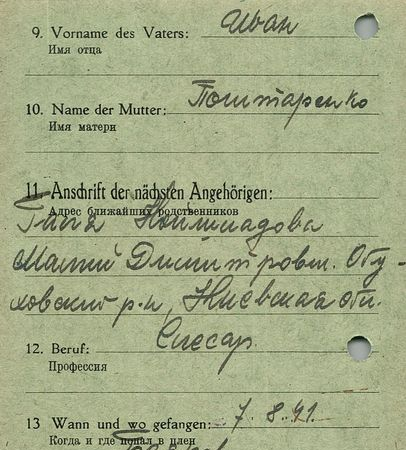 9. Vorname des Vaters: Иван
Имя отца
10. Name der Mutter: Поштаренко
Имя матери
11. Anschrift der nächsten Angehörigen:
Адрес ближайших родственников
Малий Дмитровт. Обу-
ховский р-н, Киевская обл.
12. Beruf: Слесар
Профессия
13 Wann und wo gefangen: 7.8.41.
Когда и где попал в плен